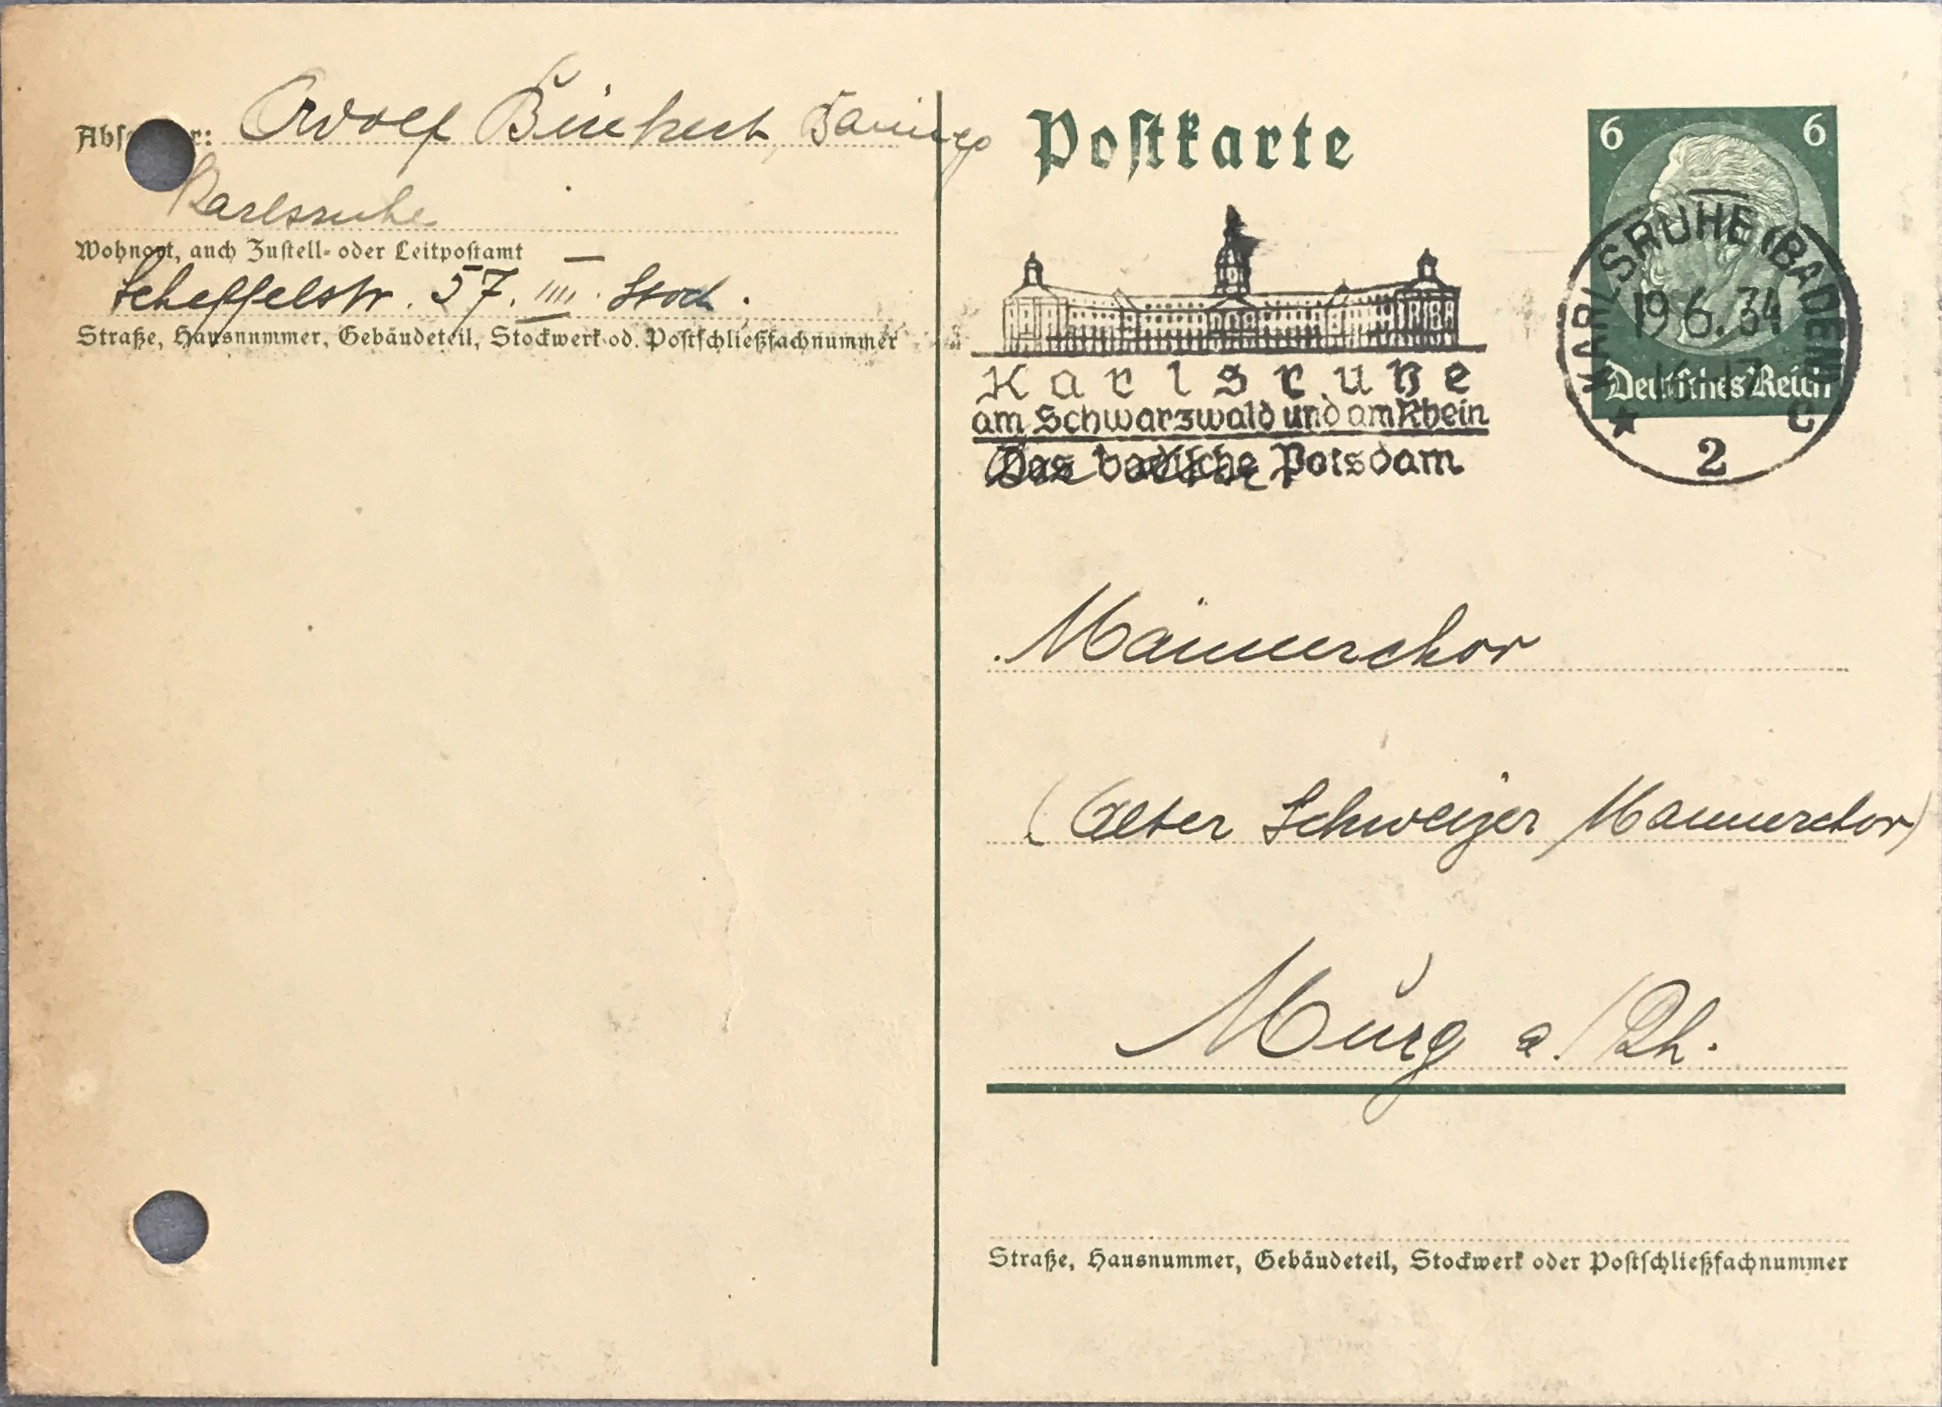 Absender: Adolf
Karlsruhe
Wohnort, auch Zustell- oder Leitpostamt
Scheffelstr. 57. IIII. Stock.
Straße, Hausnummer, Gebäudeteil, Stockwerk od. Postschließfachnummer
Postkarte
6 6
Deutsches Reich
KARLSRUHE (BADEN)
19.6.34
2 c
Karlsruhe
am Schwarzwald und am Rhein
Das badische Potsdam
Männerchor
(Alter Schweizer Männerchor)
Murg a./Rh.
Straße, Hausnummer, Gebäudeteil, Stockwerk oder Postschließfachnummer